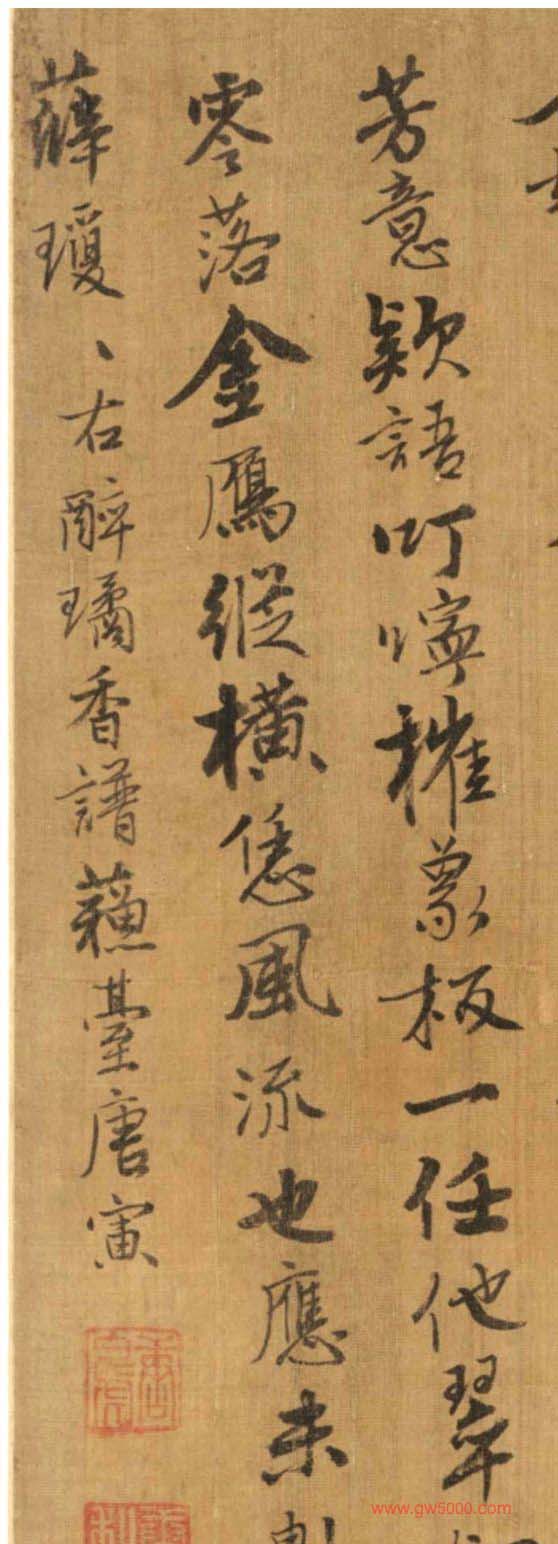 芳意欵語叮嚀摧象板一任他翠
零落金鴈縱橫恁風流也應未
薛瓊、右醉璚香譜蘓臺唐寅
www.gw5000.com